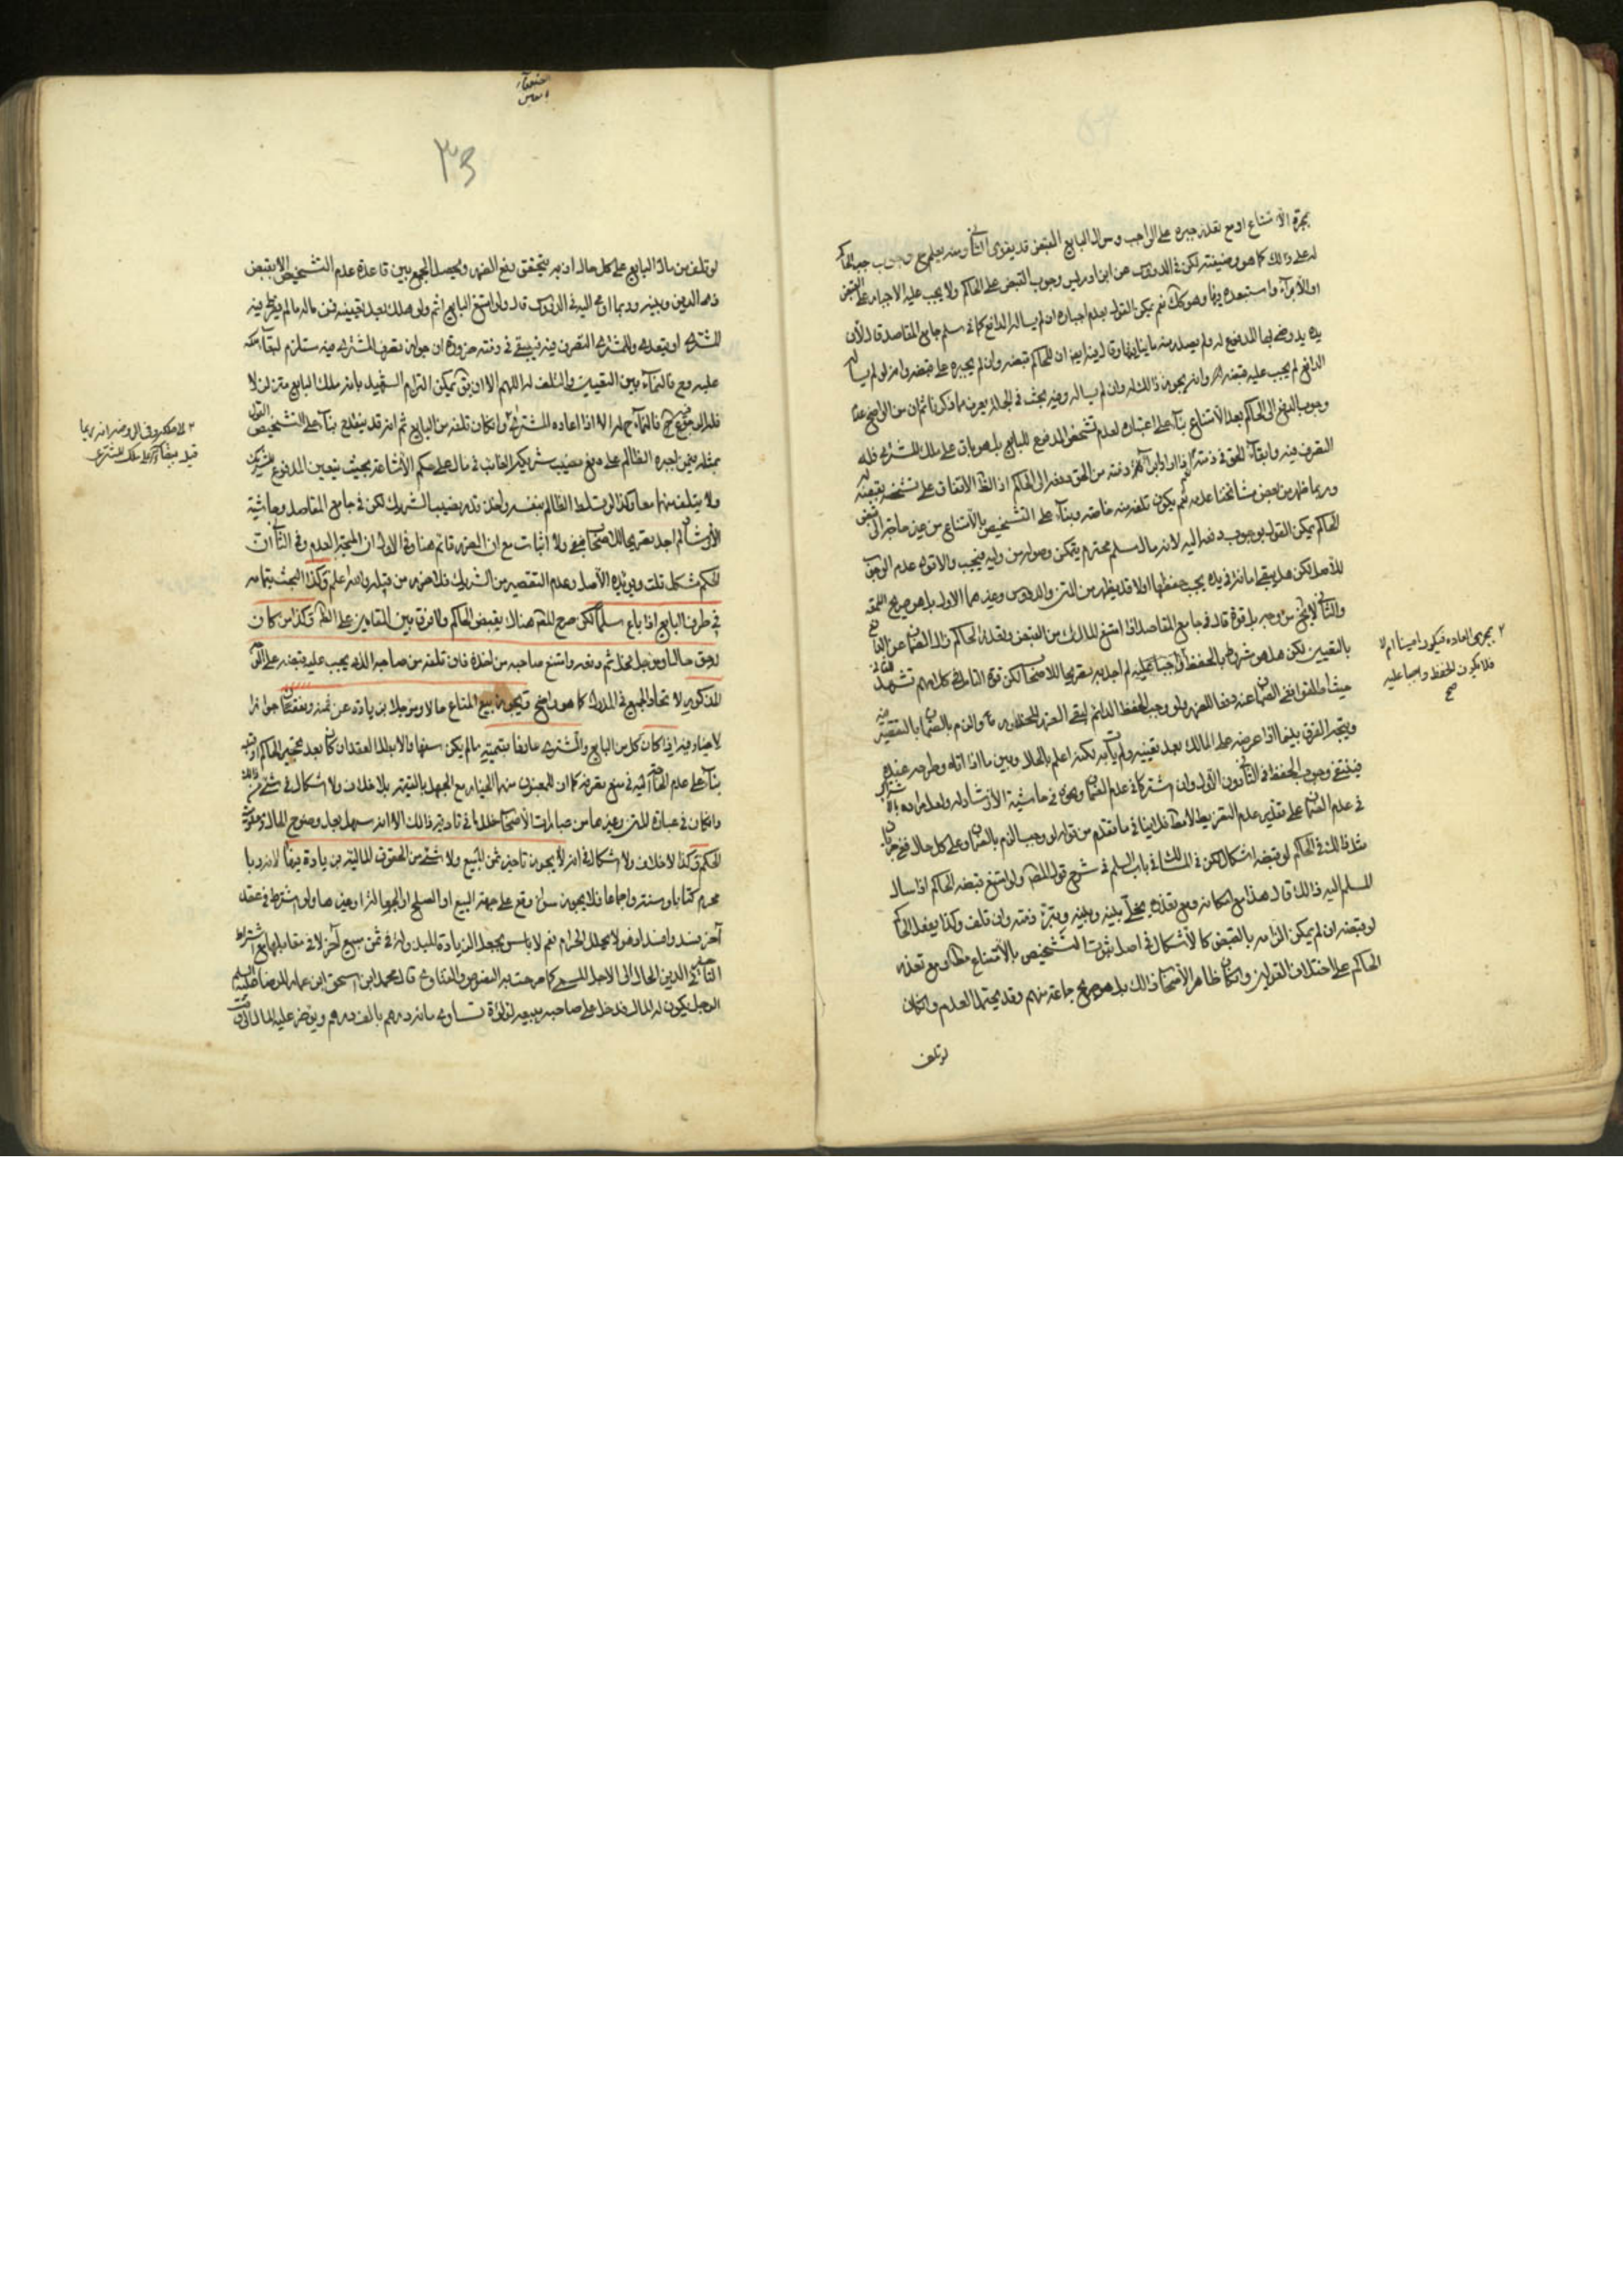 بمجرد الامتناع او مع تعذر جبره على الواجب وسؤال البايع القبض قد يقوى الثاني ومنه يعلم وجوب جبر الحاكم
له على ذلك كما هو وظيفته لكن في الدروس عن ابن ادريس وجوب القبض على الحاكم ولا يجب عليه الاجبار على القبض
او الابراء واستبعده فيها وهو كك نعم يمكن القول بعدم اجباره ان لم يساله الدافع كما في سلم جامع المقاصد قال لان
يده يد رضى بها المدفوع له ولم يصدر منه ما ينافيها وقال فيه ايضا ان للحاكم قبضه وان لم يجبره على قبضه وانه لو لم يسأله
الدافع لم يجب عليه قبضه وانه يجوز ذلك له وان لم يساله وفيه بحث في الجملة يعرف مما ذكرنا ثم ان من الواضح عدم
وجوب الدفع الى الحاكم بعد الامتناع بناء على اعتباره لعدم تشخص المدفوع للبايع بل هو باق على ملك المشتري فله
التصرف فيه وابقاء الحق في ذمته نعم اذا اراد ابراء ذمته من الحق دفعه الى الحاكم اذ الظ الاتفاق على تشخصه بقبضه
وربما ظهر من بعض مشائخنا عدمه نعم يكون تلفه منه خاصة وبناء على التشخيص بالامتناع من غير حاجة الى قبض
الحاكم يمكن القول بوجوب دفعه اليه لانه مال مسلم محترم يتمكن وصوله من وليه فيجب والاقوى عدم الوجوب
للاصل لكن هل يبقى امانة في يده يجب حفظها اولا قد يظهر من المتن والدروس وغيرهما الاول بل هو صريح اللمعة
والثاني لا يخ من وجه بل قوة قال في جامع المقاصد اذا امتنع المالك من القبض وتعذر الحاكم زال الضمان عن البايع
بالتعيين لكن هل هو شرط بالحفظ واجبا عليه لم اجد به تصريحا للاصحاب لكن قوة التامل في كلامهم تشهد للثاني
حيث اطلقوا نفي الضمان عنه دفعا للضرر ولو وجب الحفظ الدائم لبقي الضرر المحذور منه والزم بالضمان بالتقصير فيه
ويتجه الفرق بينما اذا عرضه على المالك بعد تعيينه ولم يأت به لكنه اعلم بالحال وبين ما اذا اتاه وطرحه عنده
فينتفي وجوب الحفظ في الثاني دون الاول وان اشتركا في عدم الضمان ونحوه في حاشية الارشاد له ولعل مراده اشتراكهما
في عدم الضمان على تقدير عدم التفريط لا مطلقا فلا ينافي ما تقدم من قوله لو وجب الزم بالضمان وعلى كل حال ففي جريان
مثل ذلك في الحاكم لو قبضه اشكال لكن في المسالك في باب السلم في شرح قول المصنف ولو امتنع قبضه الحاكم اذا سال
المسلم اليه ذلك قال هذا مع امكانه ومع تعذره يخلى بينه وبينه وتبرء ذمته وان تلف وكذا يفعل الحاكم
لو قبضه ان لم يمكن الزامه بالقبض كالاشكال في اصل ثبوت التشخيص بالامتناع مطلقا او مع تعذر
الحاكم على اختلاف القولين وان كان ظاهر الاصحاب ذلك بل هو صريح جماعة منهم وقد يحتمل العدم وان كان
لو تلف
٢ بمجرى العاده فيكون امينا ام لا
فلا يكون الحفظ واجبا عليه
صح
٣٥
لو تلف من مال البايع على كل حال اذ به يتحقق دفع الضرر ويحصل الجمع بين قاعدة عدم التشخيص الا بقبض
ذى الدين وبينه وربما اومى اليه في الدروس قال ولو امتنع البايع اثم ولو هلك بعد تعيينه فمن ماله ما لم يفرط فيه
المشترى او يتعدى وللمشترى التصرف فيه فيبقى في ذمته ضرورة ان جواز تصرف المشترى فيه ستلزم لبقاء ملكه
عليه ومع فالنماء بين التعيين والتلف له اللهم الا ان يق يمكن التزام الشهيد بانه ملك البايع متزلزلا
فله الرجوع فيه ح فالنماء ح له الا اذا اعاده المشترى وان كان تلفه من البايع ثم انه قد ينقدح بناء على التشخيص القول
بمثله فيمن اجبره الظالم على دفع نصيب شريكه الغائب في مال على حكم الاشاعة بحيث يتعين المدفوع للشريك
ولا يتلف منهما معا وكذا لو تسلط الظالم بنفسه واخذ قدر نصيب الشريك لكن في جامع المقاصد وحاشية
الارشاد لم اجد تصريحا للاصحاب بنفي ولا اثبات مع ان الضرر قائم هنا وفي الاول ان المتجه العدم وفي الثاني ان
الحكم مشكل قلت ويؤيده الاصل وعدم التقصير من الشريك فلا ضرر من قبله والله اعلم وكذا البحث بتمامه
في طرف البايع اذا باع سلما لكن صرح المصنف هناك بقبض الحاكم ولا فرق بين المقامين على الظ وكذا من كان
له حق حال او مؤجل فحل ثم دفعه وامتنع صاحبه من اخذه فان تلفه من صاحبه الذي يجب عليه قبضه على النحو
المذكور لاتحاد الجميع في المدرك كما هو واضح ويجوز بيع المتاع حالا ومؤجلا بزيادة عن ثمنه ونقصان جوازا
لا عبار فيه اذا كان كل من البايع والمشترى عارفا بقيمته ما لم يكن سفها والا بطل العقد ان كان بعد تحجير الحاكم او قبله
بناء على عدم الحاجة اليه في منع تصرفه كما ان للمغبون منهما الخيار مع الجهل بالقيمة بلا خلاف ولا اشكال في شئ من ذلك
وان كان في عبارة المتن وغيرها من عبارات الاصحاب خلل ما في تادية ذلك الا انه سهل بعد وضوح الحال ومعلومية
الحكم وكذا لا خلاف ولا اشكال في انه لا يجوز تاخير ثمن المبيع ولا شئ من الحقوق المالية بزيادة فيها لانه ربا
محرم كتابا وسنة واجماعا فلا يجوز سواء وقع على جهة البيع او الصلح او الجعالة او غيرها ولو اشترط في عقد
آخر فسد وافسد اذ هو لا يحلل الحرام نعم لا باس بجعل الزيادة المبذولة في ثمن مبيع آخر لا في مقابلها مع اشتراط
التاخير في الدين الحال الى الاجل المسمى كما صرحت به النصوص والفتاوى قال محمد ابن اسحق ابن عمار للرضا عليه السلم
الرجل يكون له المال فدخل على صاحبه يبيعه لؤلؤة تساوى مائة درهم بالف درهم ويؤخر عليه المال الى وقت